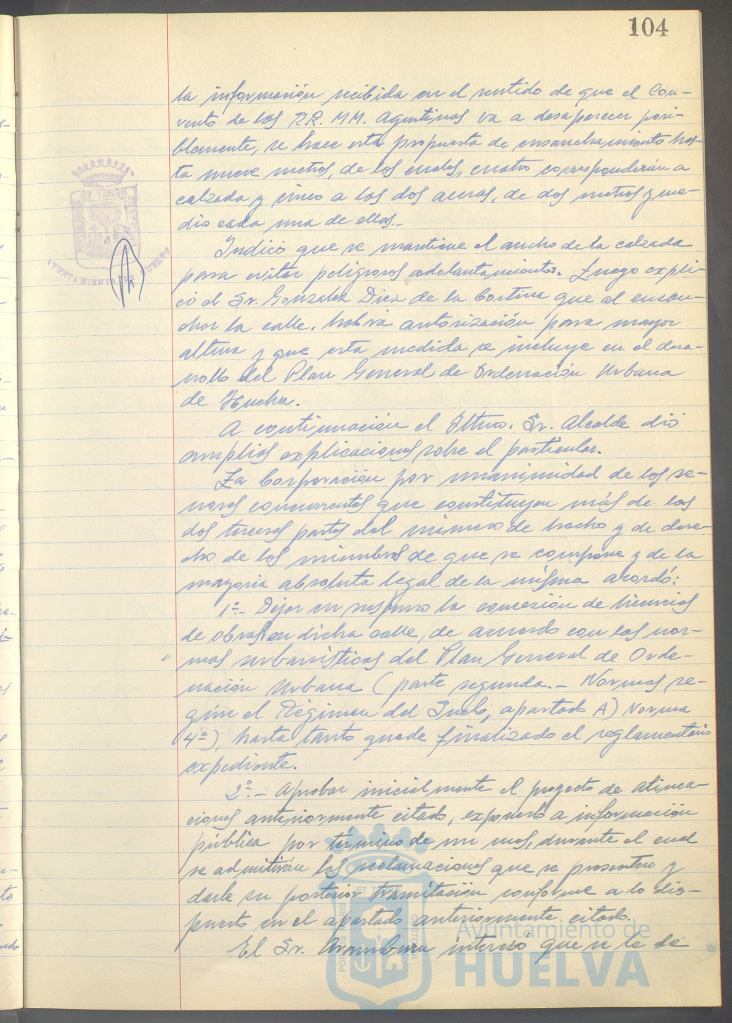 104
la información recibida en el sentido de que el Con-
vento de las R.R. M.M. Agustinas va a desaparecer posi-
blemente, se hace esta propuesta de ensanchamiento has-
ta nueve metros, de los cuales, cuatro corresponderán a
calzada y cinco a las dos aceras, de dos metros y me-
dio cada una de ellas.-
Indicó que se mantiene el ancho de la calzada
para evitar peligrosos adelantamientos. Luego expli-
có el Sr. Gonzalez Diez de la Cortina que al ensan-
char la calle, habrá autorización para mayor
altura y que esta medida se incluye en el desa-
rrollo del Plan General de Ordenación Urbana
de Huelva.
A continuación el Iltmo. Sr. Alcalde dió
amplias explicaciones sobre el particular.
La Corporación por unanimidad de los se-
ñores concurrentes que constituyen más de las
dos terceras partes del número de hecho y de dere-
cho de los miembros de que se compone y de la
mayoría absoluta legal de la misma acordó:
1º.- Dejar en suspenso la concesión de licencias
de obras en dicha calle, de acuerdo con las nor-
mas urbanísticas del Plan General de Orde-
nación Urbana (parte segunda.- Normas se-
gún el Régimen del Suelo, apartado A) Norma
4ª), hasta tanto quede finalizado el reglamentario
expediente.
2º.- Aprobar inicialmente el proyecto de alinea-
ciones anteriormente citado, exponerlo a información
pública por término de un mes, durante el cual
se admitirán las reclamaciones que se presenten y
darle su posterior tramitación conforme a lo dis-
puesto en el apartado anteriormente citado.
El Sr. Aramburu interesó que se le dé
Ayuntamiento de
HUELVA